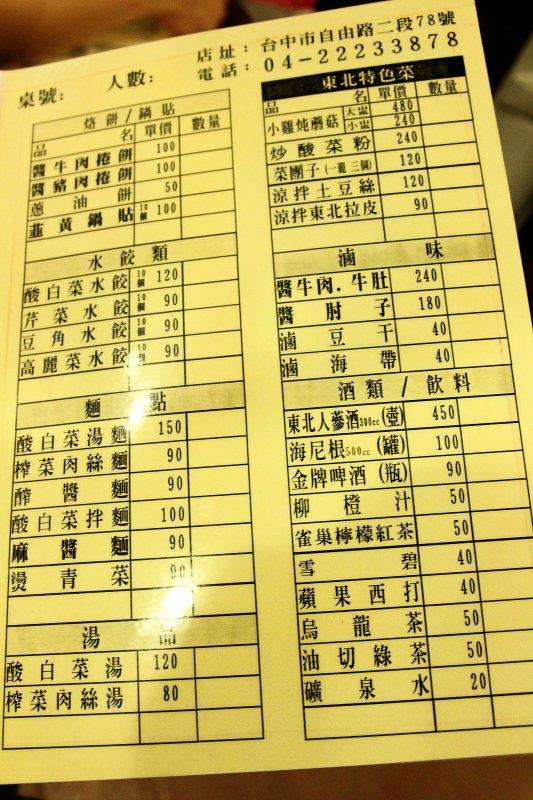 店址：台中市自由路二段78號
電話：04-22233878
桌號： 人數：
烙餅/鍋貼
品名 單價 數量
醬牛肉捲餅 100
醬豬肉捲餅 100
蔥油餅 50
韮黃鍋貼 10個 100
水餃類
酸白菜水餃 10個 120
芹菜水餃 10個 90
豆角水餃 10個 90
高麗菜水餃 10個 90
麵點
酸白菜湯麵 150
榨菜肉絲麵 90
醡醬麵 90
酸白菜拌麵 100
麻醬麵 90
燙青菜 90
湯品
酸白菜湯 120
榨菜肉絲湯 80
東北特色菜
品名 單價 數量
小雞炖蘑菇 大盅 480
小盅 240
炒酸菜粉 240
菜團子(一籠 三個) 120
涼拌土豆絲 120
涼拌東北拉皮 90
滷味
醬牛肉.牛肚 240
醬肘子 180
滷豆干 40
滷海帶 40
酒類/飲料
東北人蔘酒300cc(壺) 450
海尼根500cc(罐) 100
金牌啤酒(瓶) 90
柳橙汁 50
雀巢檸檬紅茶 50
雪碧 40
蘋果西打 40
烏龍茶 50
油切綠茶 50
礦泉水 20